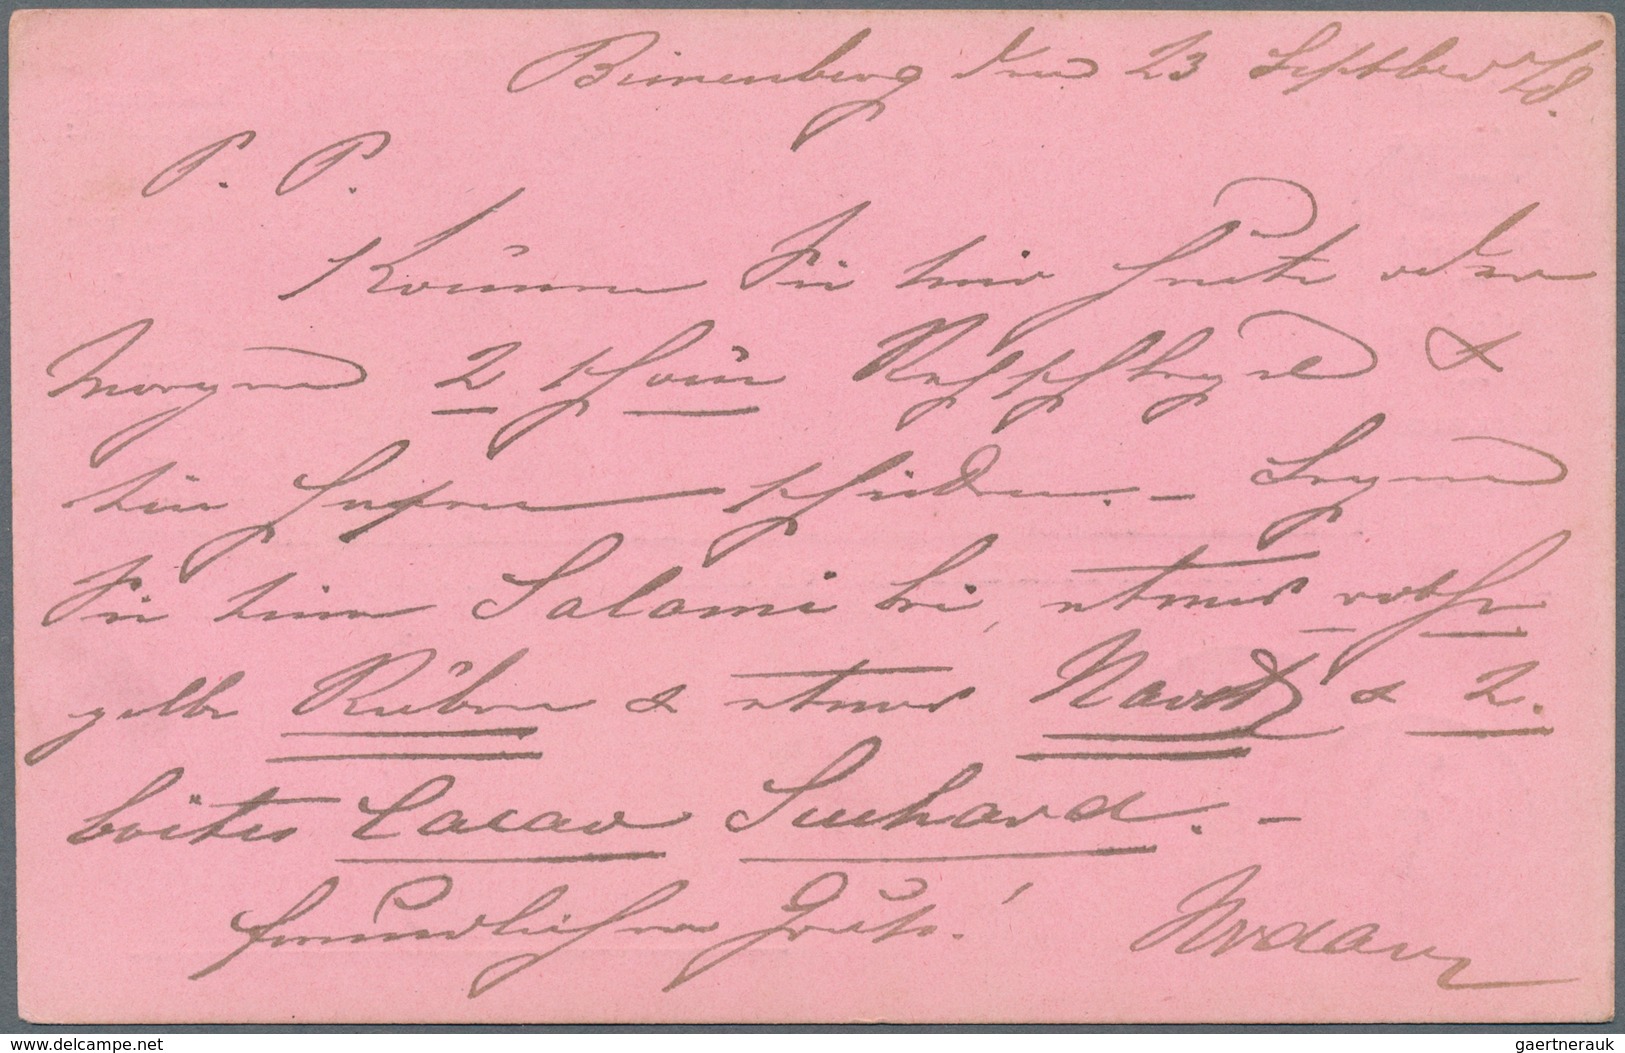 Bienenberg den 23 Septber 78.
P. P.
Können Sie mir heute oder
morgen 2 schöne Rehschlegel &
ein Hasen schicken. - Legen
Sie eine Salami bei, etwas rothe
gelbe Rüben & etwas & 2.
boites Cacao Suchard. -
freundlichen Gruss!
www.delcampe.net
gaertnerauk